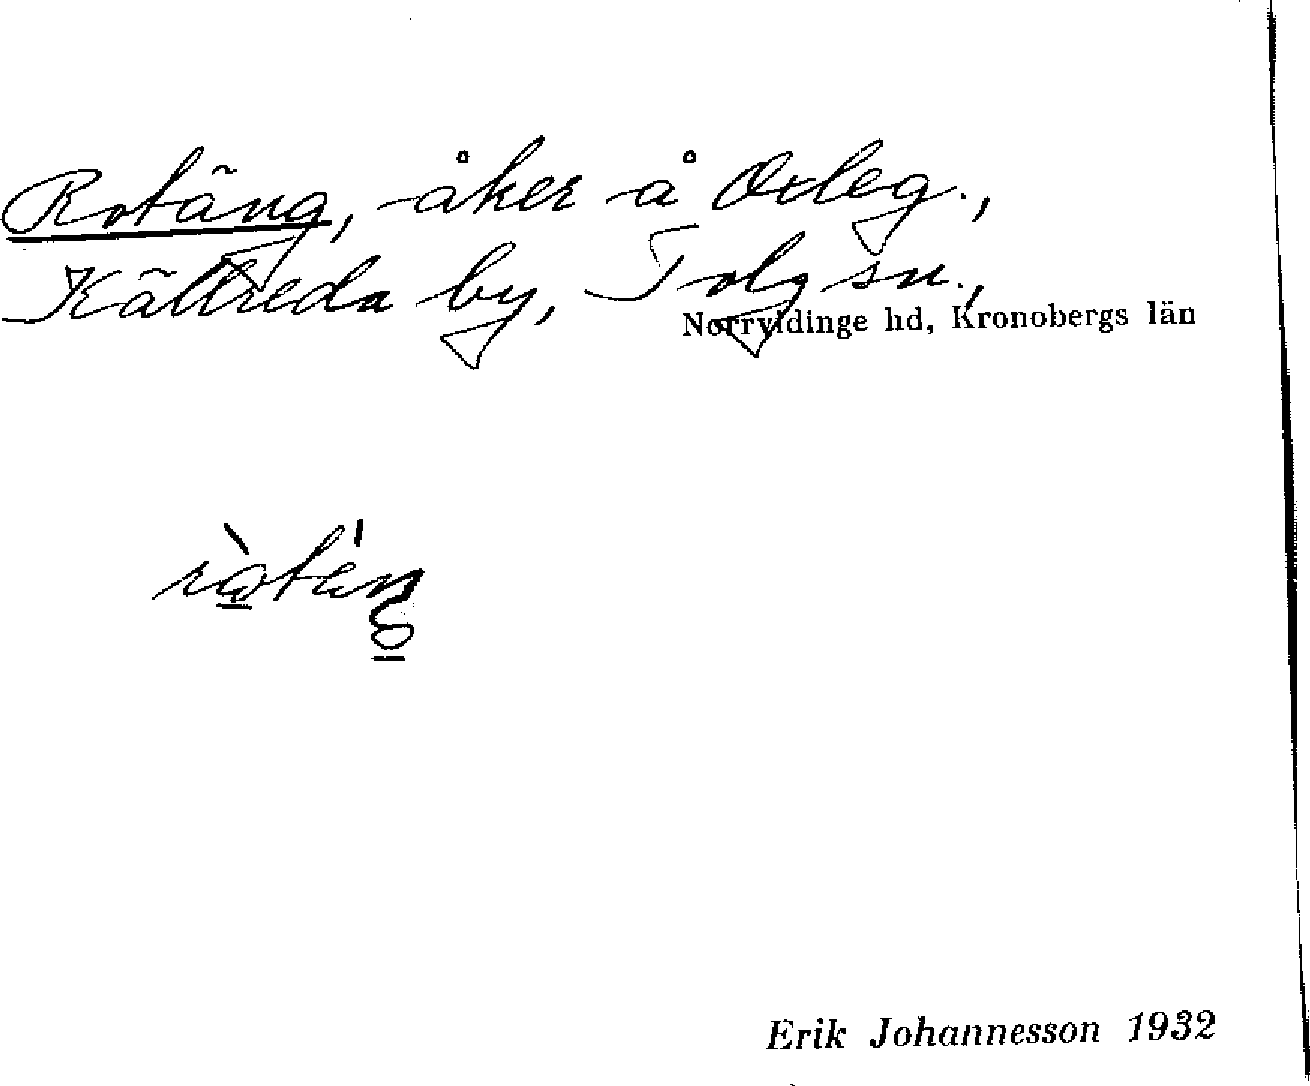 Rotäng, åker å Oxleg.,
Källreda by, Tolg sn.,
Norrvidinge hd, Kronobergs län
Erik Johannesson 1932